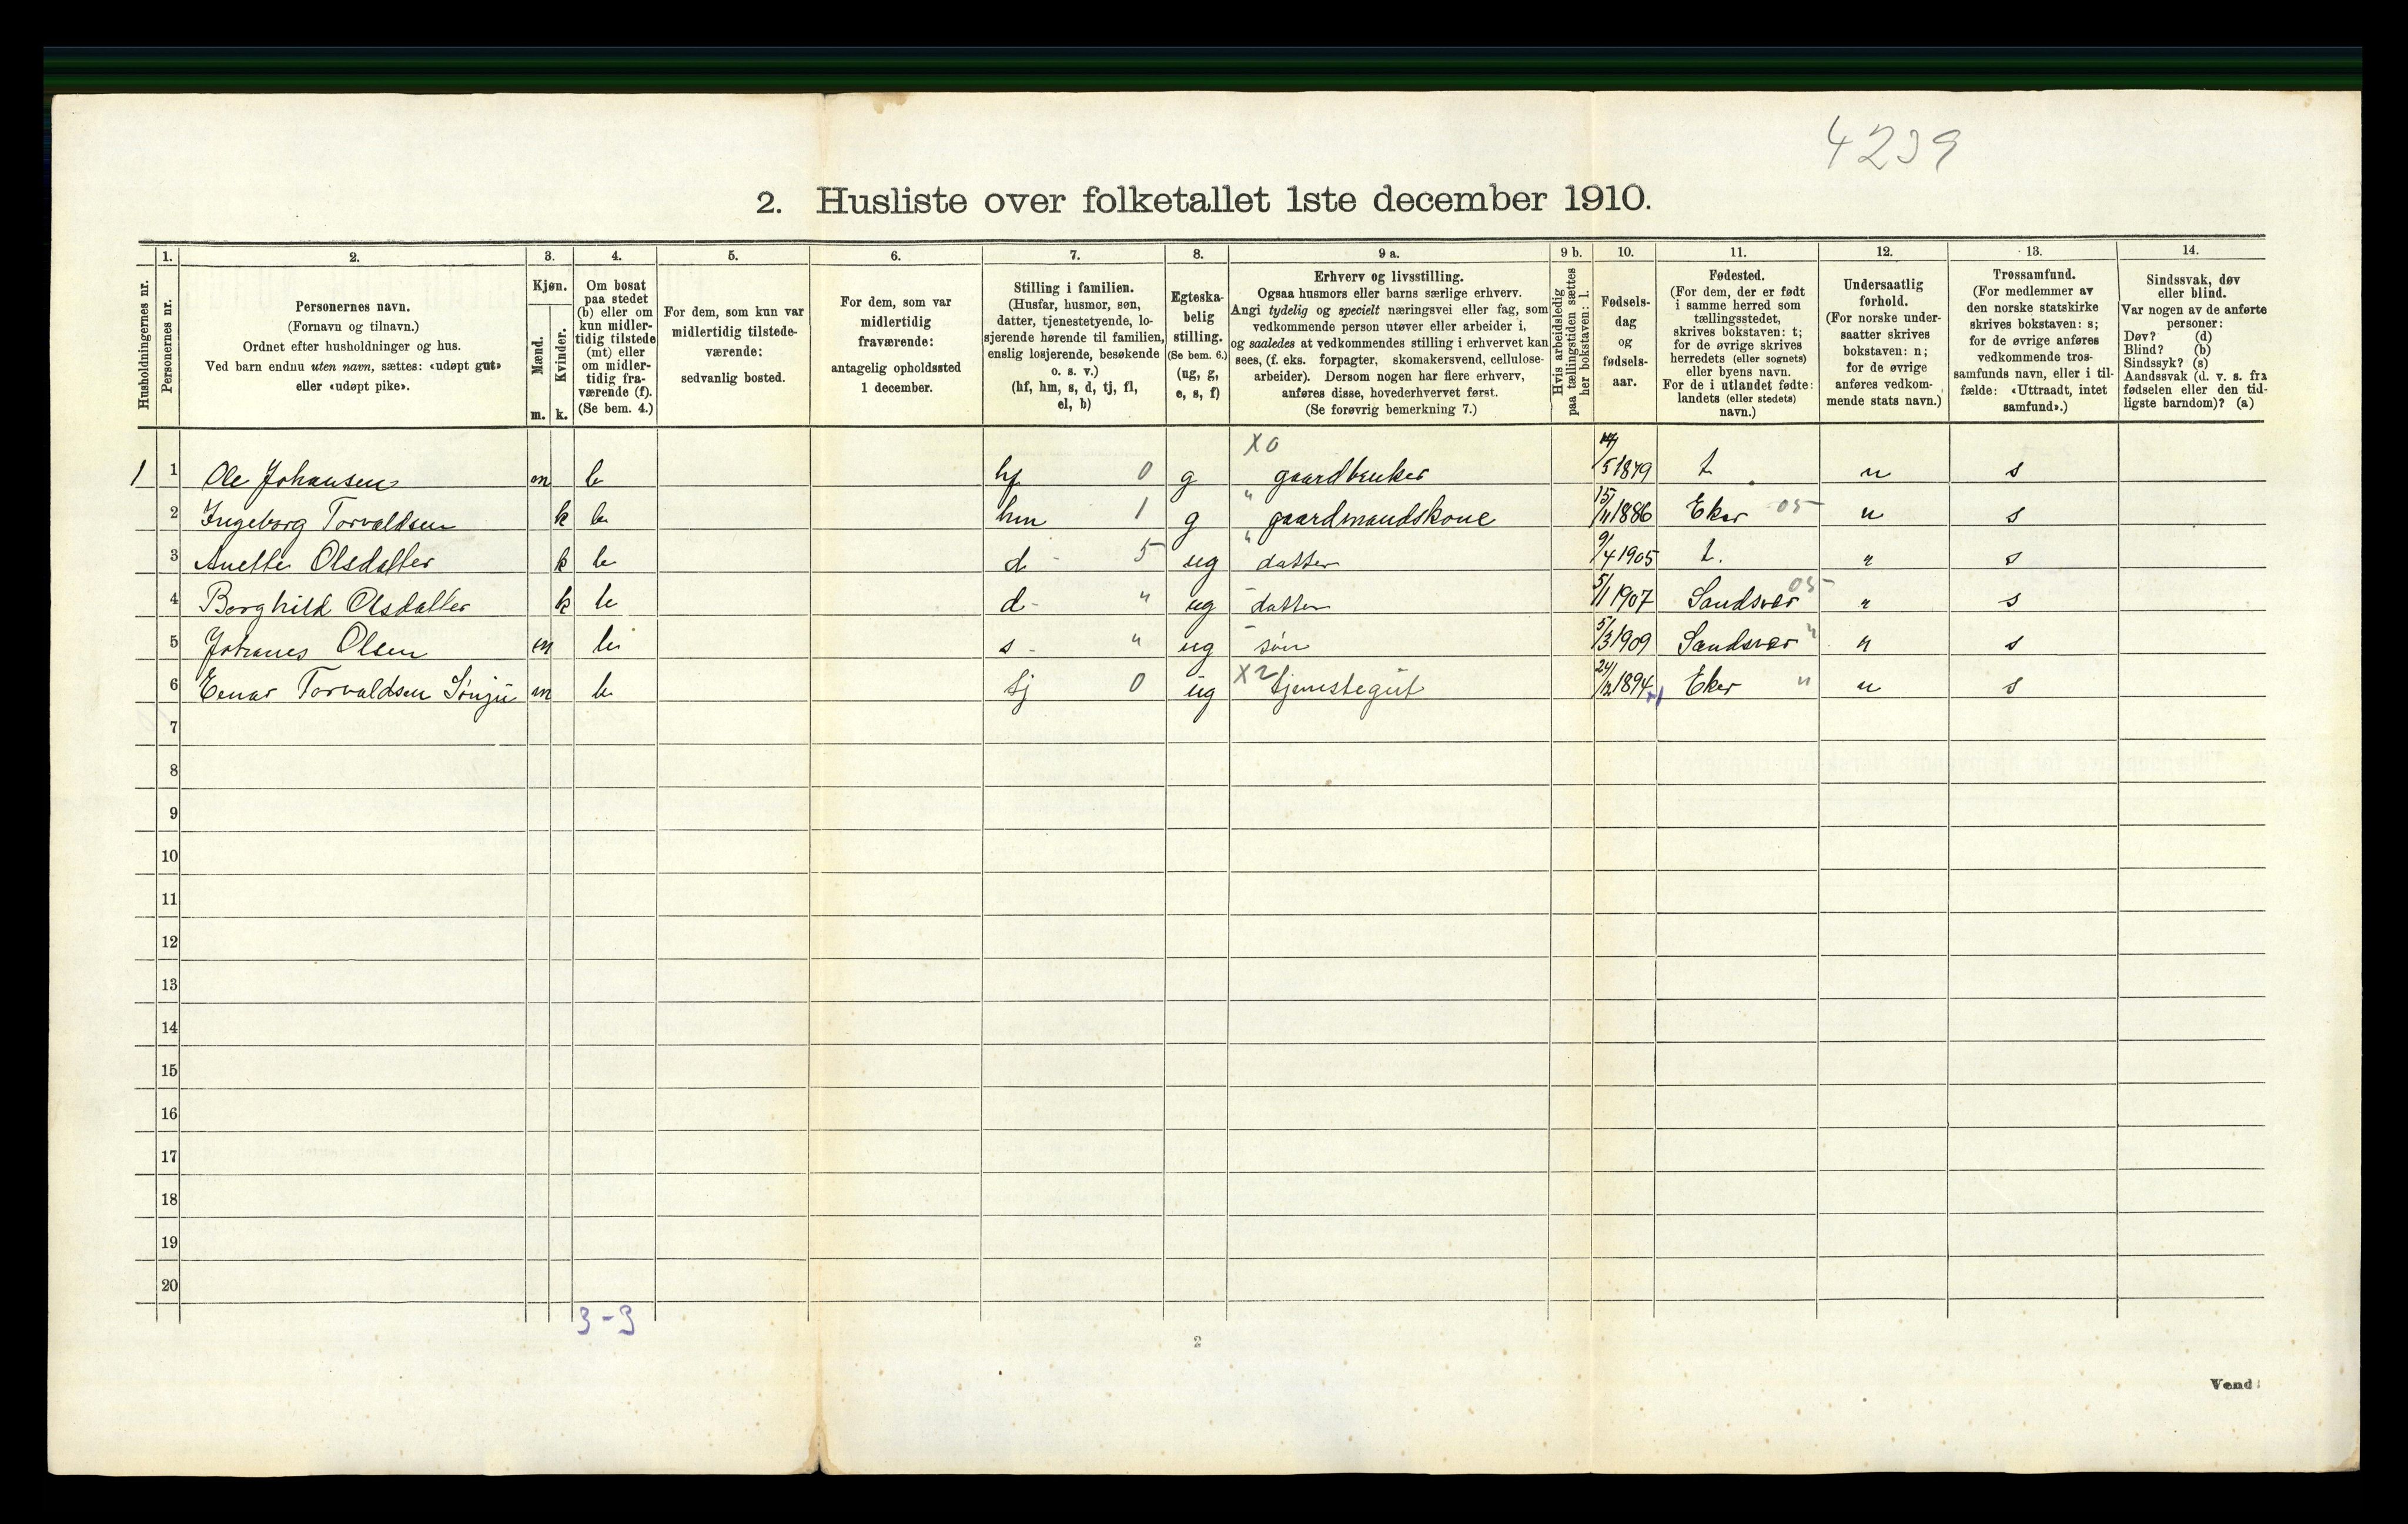 4239
2. Husliste over folketallet 1ste december 1910.
Husholdningernes nr.
1.
Personernes nr.
2.
Personernes navn.
(Fornavn og tilnavn.)
Ordnet efter husholdninger og hus.
Ved barn endnu uten navn, sættes: «udøpt gut»
eller «udøpt pike».
3.
Kjøn.
Mænd.
m.
Kvinder.
k.
4.
Om bosat
paa stedet
(b) eller om
kun midler-
tidig tilstede
(mt) eller
om midler-
tidig fra-
værende (f).
(Se bem. 4.)
5.
For dem, som kun var
midlertidig tilstede-
værende:
sedvanlig bosted.
6.
For dem, som var
midlertidig
fraværende:
antagelig opholdssted
1 december.
7.
Stilling i familien.
(Husfar, husmor, søn,
datter, tjenestetyende, lo-
sjerende hørende til familien,
enslig losjerende, besøkende
o. s. v.)
(hf, hm, s, d, tj, fl,
el, b)
8.
Egteska-
belig
stilling.
(Se bem. 6.)
(ug, g,
e, s, f)
9 a.
Erhverv og livsstilling.
Ogsaa husmors eller barns særlige erhverv.
Angi tydelig og specielt næringsvei eller fag, som
vedkommende person utøver eller arbeider i,
og saaledes at vedkommendes stilling i erhvervet kan
sees, (f. eks. forpagter, skomakersvend, cellulose-
arbeider). Dersom nogen har flere erhverv,
anføres disse, hovederhvervet først.
(Se forøvrig bemerkning 7.)
9 b.
Hvis arbeidsledig
paa tællingstiden sættes
her bokstaven: l.
10.
Fødsels-
dag
og
fødsels-
aar.
11.
Fødested.
(For dem, der er født
i samme herred som
tællingsstedet,
skrives bokstaven: t;
for de øvrige skrives
herredets (eller sognets)
eller byens navn.
For de i utlandet fødte:
landets (eller stedets)
navn.)
12.
Undersaatlig
forhold.
(For norske under-
saatter skrives
bokstaven: n;
for de øvrige
anføres vedkom-
mende stats navn.)
13.
Trossamfund.
(For medlemmer av
den norske statskirke
skrives bokstaven: s;
for de øvrige anføres
vedkommende tros-
samfunds navn, eller i til-
fælde: «Uttraadt, intet
samfund».)
14.
Sindssvak, døv
eller blind.
Var nogen av de anførte
personer:
Døv? (d)
Blind? (b)
Sindssyk? (s)
Aandssvak (d. v. s. fra
fødselen eller den tid-
ligste barndom)? (a)
X0
1 1 Ole Johansen m b hf 0 g gaardbruker /5 1879 t. n s
2 Ingeborg Torvaldsen k b hm 1 g " gaardmandskone 15/11 1886 Eker 05 n s
3 Anette Olsdatter k b d - 5 ug " datter 9/4 1905 t. n s
4 Borghild Olsdatter k b d - " ug datter 5/1 1907 Sandsvær 05 n s
5 Johanes Olsen m b s - " ug søn 5/3 1909 Sandsvær " n s
6 Einar Torvaldsen Sønju m b tj 0 ug X2 tjenstegut 24/12 1894 Eker " n s
7
8
9
10
11
12
13
14
15
16
17
18
19
20
3-3
2
Vend!